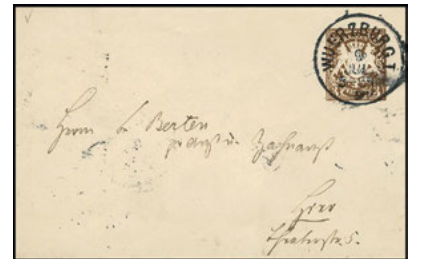 WUERZBURG I
9
JUL
Herrn Dr Berten
prakt. u. Zahnarzt
Hier
Theaterstr. 5.